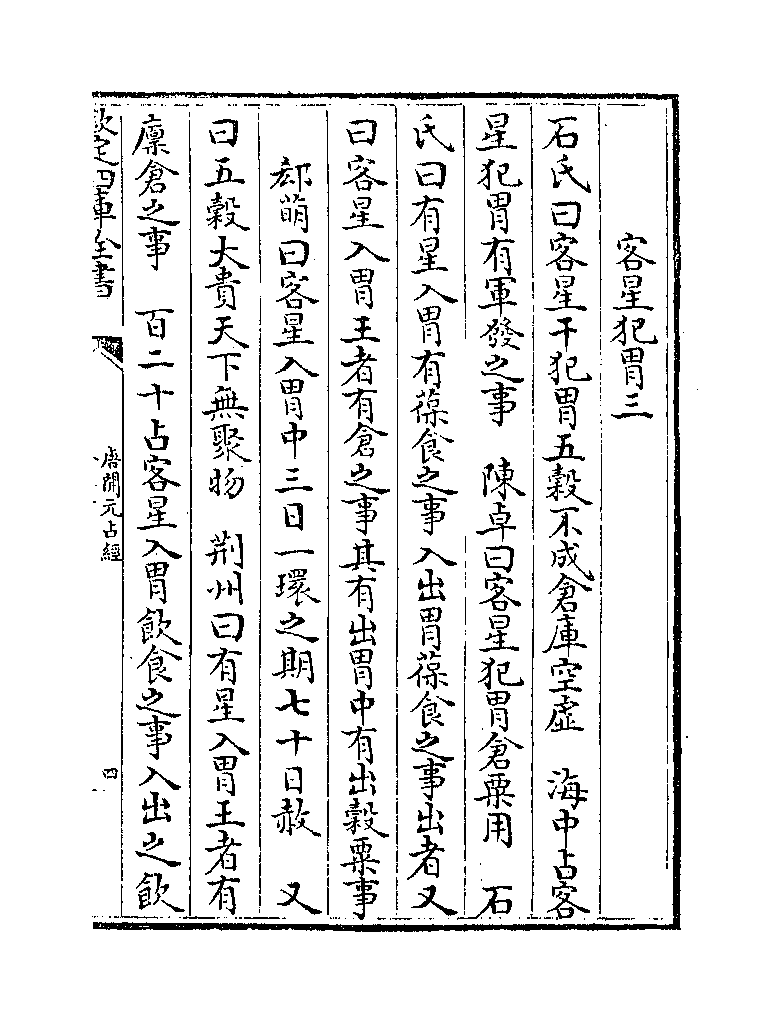 客星犯胃三
石氏曰客星干犯胃五穀不成倉庫空虛　海中占客
星犯胃有軍發之事　陳卓曰客星犯胃倉粟用　石
氏曰有星入胃有葆食之事入出胃葆食之事出者又
曰客星入胃王者有倉之事其有出胃中有出穀粟事
郄萌曰客星入胃中三日一環之期七十日赦　又
曰五穀大貴天下無聚物　荆州曰有星入胃王者有
廩倉之事　百二十占客星入胃飲食之事入出之飲
欽定四庫全書
唐開元占經
四